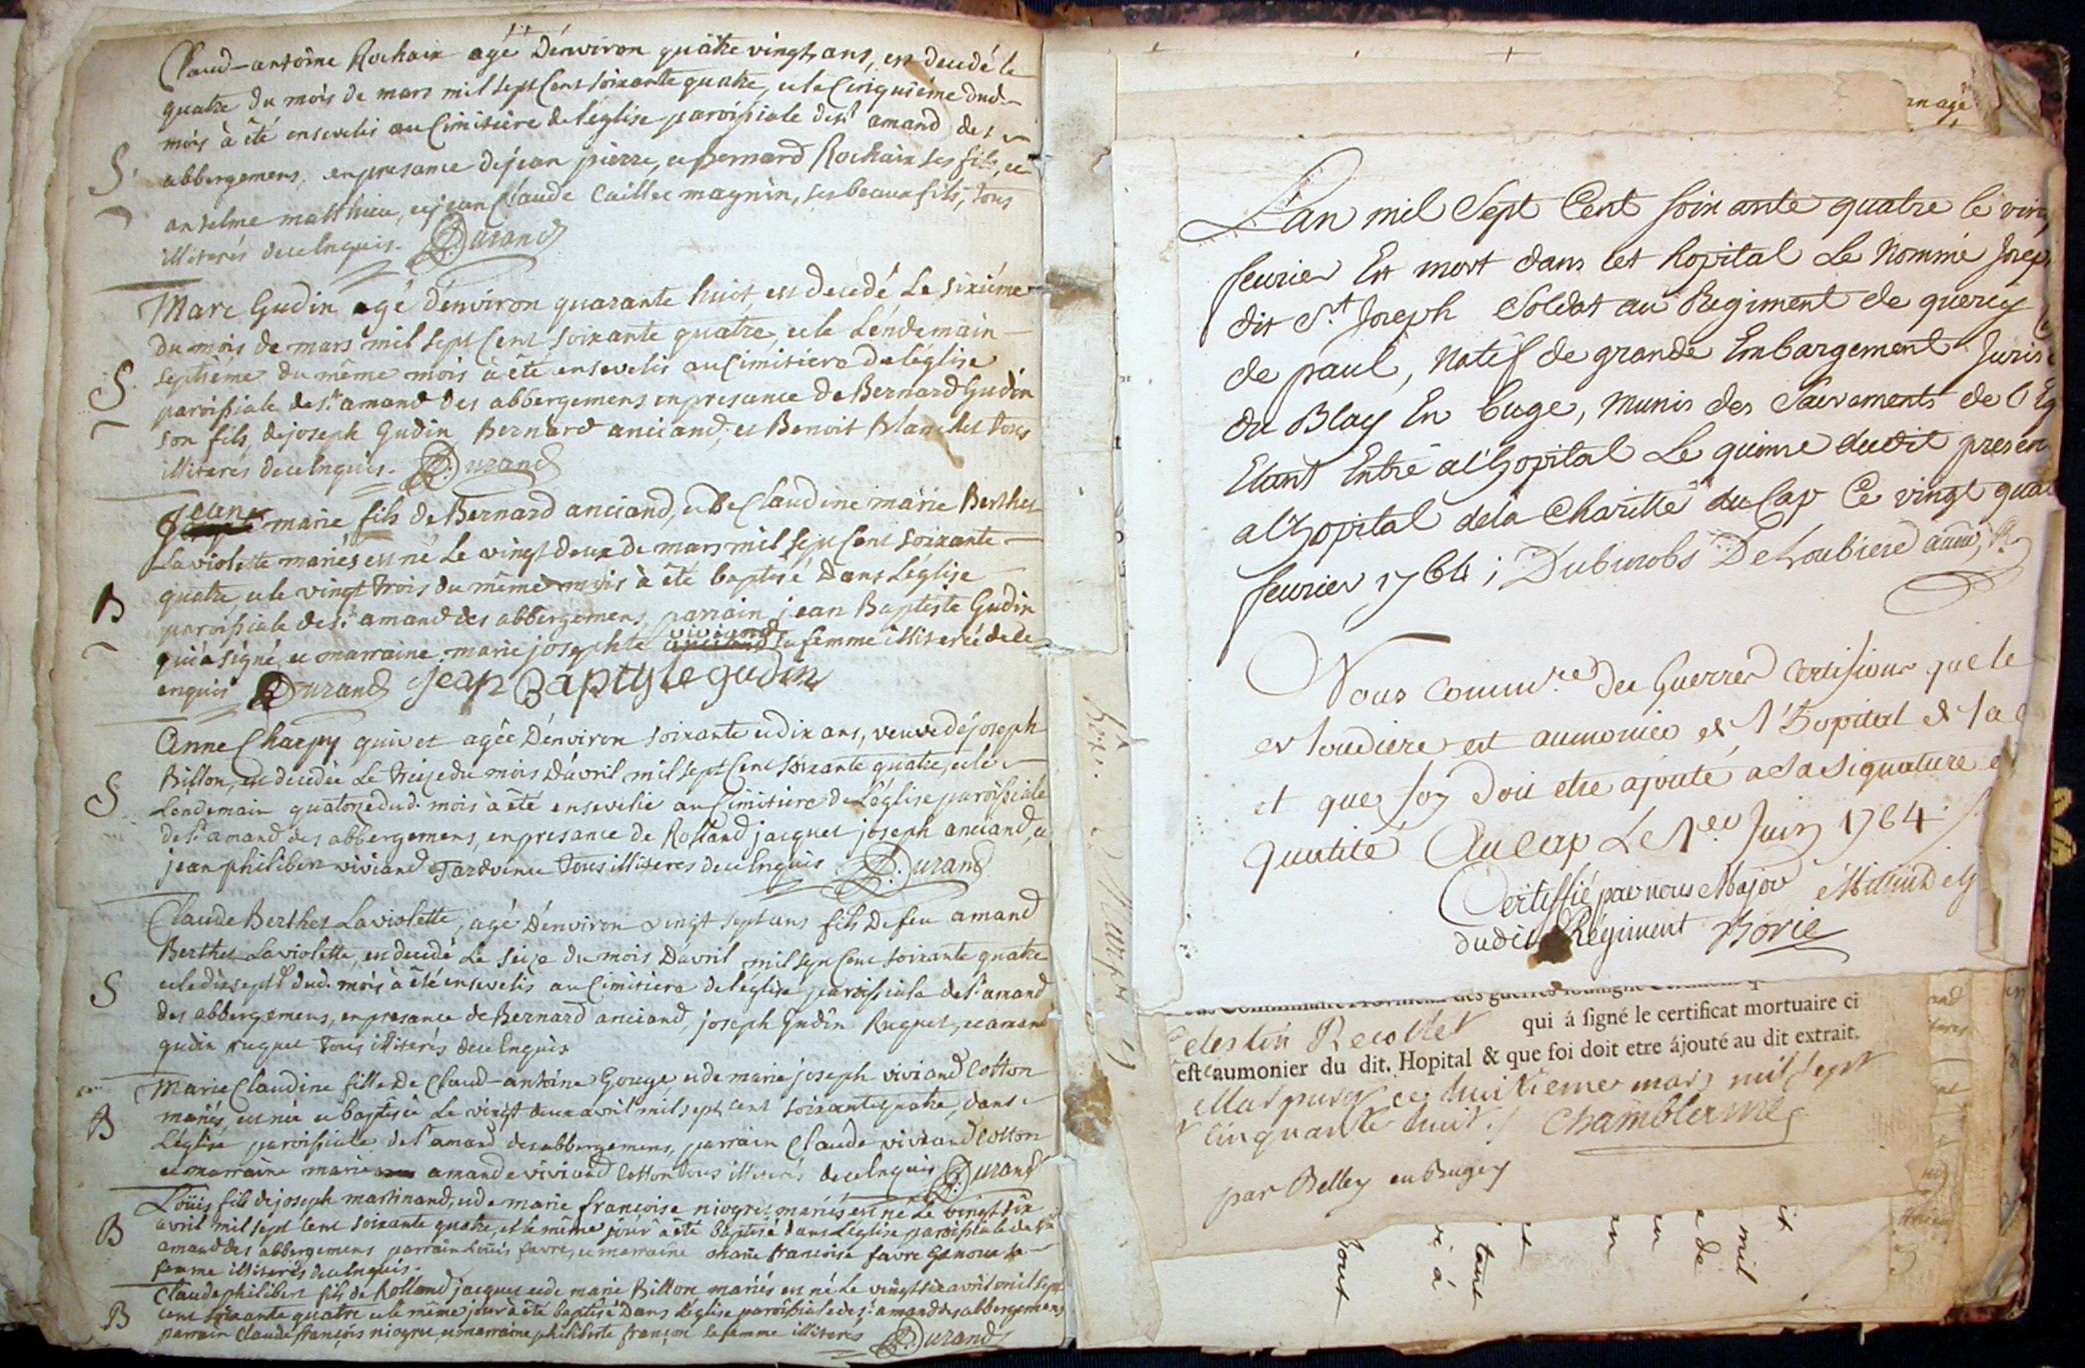 Claud-antoine Rochaix agé D'énviron quatre vingt ans, est decedé le
quatre du mois de mars mil sept Cent soixante quatre, et le Cinquiéme dud.
mois à été ensevelis au Cimitiere de l'église paroissiale de st amand des
abbergemens, en presance de jean pierre, et Bernard Rochaix ses fils, et
S.
anselme matthieu, et jean Claude Caillet magnin, ses beaux fils, tous
illiterés de ce Enquis. Durand
Marc Gudin agé d'énviron quarante huit est decedé Le sixiéme
du mois de mars mil sept Cent soixante quatre, et le Léndemain
septieme du même mois à été ensevelis au Cimitiere de l'église
S.
paroissiale de st. amand des abbergemens en presance de Bernard Gudin
son fils, de joseph Gudin, Bernard anciand, et Benoit Blanchet tous
illiterés de ce Enquis. Durand
Jean marie fils de Bernard anciand, et De Claudine marie Berthet
La violette mariés est né Le vingt deux de mars mil sept Cent soixante
quatre et le vingt trois du même mois à été baptisé Dans L'eglise
B
paroissiale de st. amand des abbergemens, parrain jean Baptiste Gudin
qui a signé, et marraine marie josephte viviand sa femme illiterée de ce
enquis Durand jean Baptyste gudin
Anne Charpy guivet agée D'énviron soixante et dix ans, veuve de joseph
Billon, est decedée Le treize du mois D'avril mil sept Cent soixante quatre, et le
S
Lendemain quatorze dud. mois à été ensevelie au Cimitiere de L'église paroissiale
de st. amand des abbergemens, en presance de Rolland jacquet joseph anciand, et
jean philibert viviand Tardvenu tous illiteres de ce Enquis Durand
Claude Berthet La violette, agé D'énviron vingt sept ans fils De feu amand
Berthet La violette, est decedé Le seize du mois D'avril mil sept Cent soixante quatre
S
et le dix sept dud. mois à été ensevelis au Cimitiere de l'église paroissiale de st. amand
des abbergemens, en presance de Bernard anciand, joseph Gudin Ruguet, et amand
gudin ruguet tous illiterés de ce Enquis
Marie Claudine fille De Claud-antoine Gouge et de marie joseph viviand Cotton
B
mariés, est née et baptisée Le vingt deux avril mil sept cent soixante quatre, dans
L'église paroissiale de st. amand des abbergemens, parrain Claude viviand Cotton
et marraine marie amande viviand Cotton tous illiterés de ce Enquis Durand
Loüis fils de joseph martinand, et de marie françoise niogret mariés est né Le vingt six
B
avril mil sept Cent soixante quatre, et le même jour à été baptisé Dans L'église paroissiale de st.
amand des abbergemens parrain Louis favre, et marraine marie francoise favre Genoux sa
femme illiterés de ce Enquis.
Claude philibert fils de Rolland jacquet et de marie Billon mariés est né Le vingt six avril mil sept
B
cent soixante quatre et le même jour à été baptisé Dans L'église paroissiale de st. amand des abbergemens
parrain Claude françois niogret et marraine philiberte françon sa femme illiteres Durand
Lan mil Sept Cent soixante quatre le vin
feurier Est mort dans Cet hopital Le Nommé Josep
dit St. Joseph Soldat au Regiment de quercy
de paul, Natif de grande Embargement Juris
du Blay En Buge, Munis des Sacrements de l'Eg
Etant Entré a l'hopital Le quinse dudit presen
a l'hopital de la Charitté du Cap Ce vingt qua
feurier 1764; DeLoubiere aum.
Nous Commre. des Guerres certifions que le
est aumonier de l'hopital de la
et que foy doit etre ajouté a Sa Signature et
qualité Au Cap Le 1er Juin 1764
Certiffié par nous Major
dudit Régiment Borie
Celestin Recollet qui à signé le certificat mortuaire ci
est aumonier du dit Hopital & que foi doit etre ájouté au dit extrait.
ce huitieme mars mil sept
cinquante huit. / Chamblerme
par Belley en Bugey